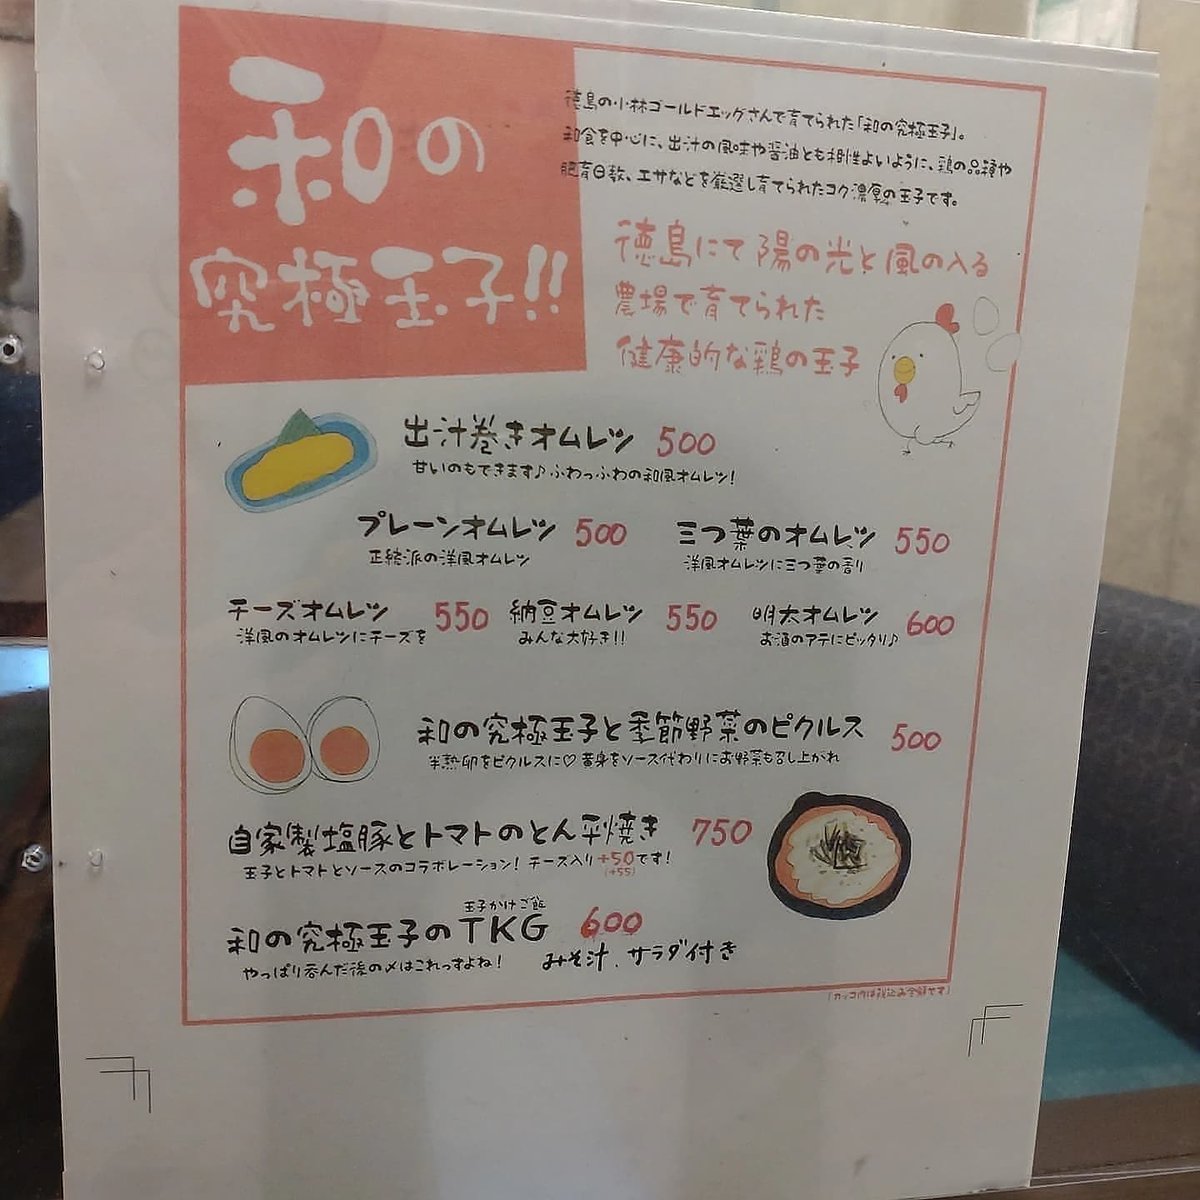 和の
究極玉子!!
徳島の小林ゴールドエッグさんで育てられた「和の究極玉子」。
和食を中心に、出汁の風味や醤油とも相性よいように、鶏の品種や
肥育日数、エサなどを厳選し育てられたコク濃厚の玉子です。
徳島にて陽の光と風の入る
農場で育てられた
健康的な鶏の玉子
出汁巻きオムレツ 500
甘いのもできます♪ふわっふわの和風オムレツ!
プレーンオムレツ 500
正統派の洋風オムレツ
三つ葉のオムレツ 550
洋風オムレツに三つ葉の香り
チーズオムレツ 550
洋風のオムレツにチーズを
納豆オムレツ 550
みんな大好き!!
明太オムレツ 600
お酒のアテにピッタリ♪
和の究極玉子と季節野菜のピクルス 500
半熟卵をピクルスに♡黄身をソース代わりにお野菜も召し上がれ
自家製塩豚とトマトのとん平焼き 750
玉子とトマトとソースのコラボレーション! チーズ入り+50です!
(+55)
玉子かけご飯
和の究極玉子のTKG 600
やっぱり呑んだ後の〆はこれっすよね!
みそ汁、サラダ付き
(カッコ内は税込み金額です)